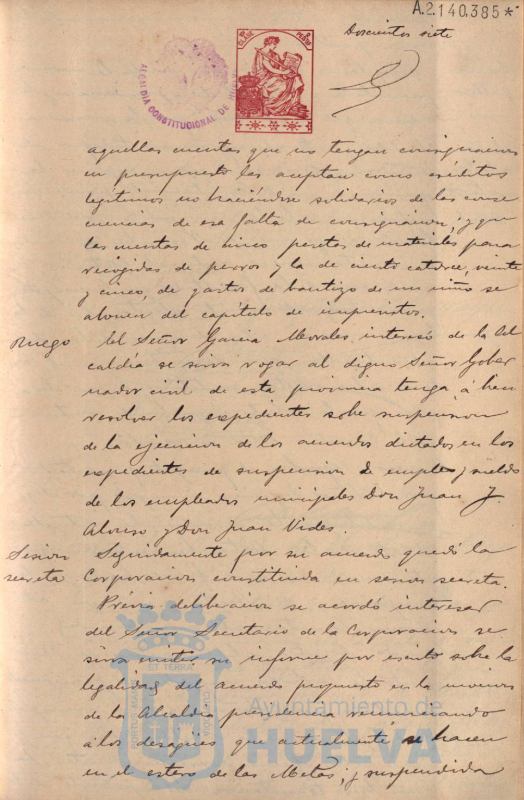 A.2.140.385*
Doscientos siete
CLASE PESO
ALCALDIA CONSTITUCIONAL DE HUELVA
aquellas cuentas que no tengan consignacion
en presupuesto las aceptan como creditos
legítimos no haciéndose solidarios de las conse
cuencias de esa falta de consignacion; y que
las cuentas de cinco pesetas de materiales para
recogidas de perros y la de ciento catorce, veinte
y cinco, de gastos de bautizo de un niño se
abonen del capítulo de imprevistos.
Ruego El Señor Garcia Morales interesó de la Al
caldía se sirva rogar al digno Señor Gober
nador civil de esta provincia tenga á bien
resolver los expedientes sobre suspension
de la ejecucion de los acuerdos dictados en los
expedientes de suspension de empleo y sueldo
de los empleados municipales Don Juan J.
Alonso y Don Juan Vides.
Sesion secreta Seguidamente por su acuerdo quedó la
Corporacion constituida en sesion secreta.
Prévia deliberacion se acordó interesar
del Señor Secretario de la Corporacion se
sirva emitir su informe por escrito sobre la
legalidad del acuerdo propuesto en la mocion
de la Alcaldía presidencia
á los desagües que actualmente se hacen
en el estero de las Metas; y suspendida
PORTUS MARIS ET TERRAE CUSTODIA
Ayuntamiento de
HUELVA